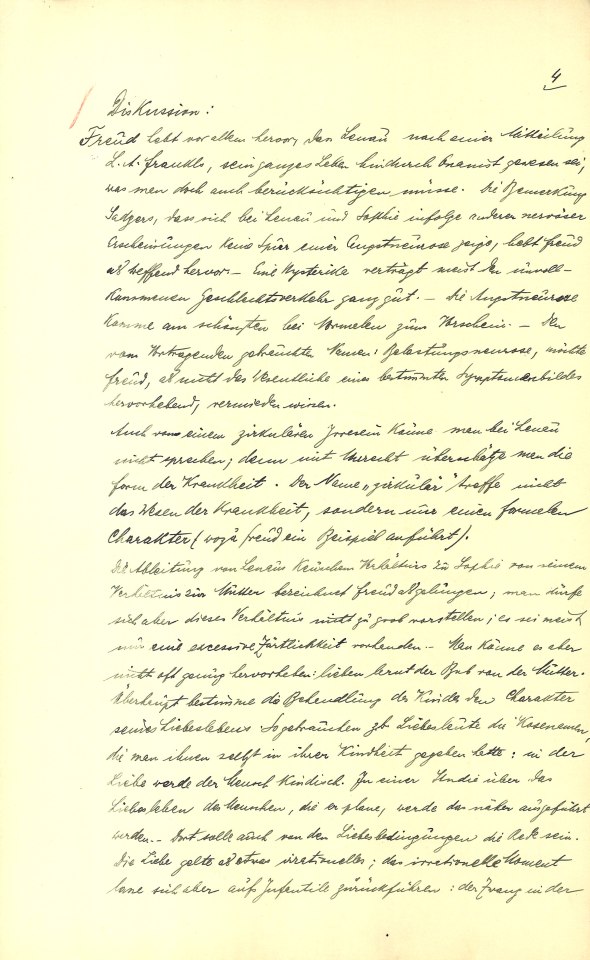 4
Diskussion:
Freud hebt vor allem hervor, dass Lenau nach einer Mitteilung
L. A. Frankls, sein ganzes Leben hindurch Onanist gewesen sei,
was man doch auch berücksichtigen müsse. Die Bemerkung
Sadgers, dass sich bei Lenau und Sophie infolge anderer nervöser
Erscheinungen keine Spur einer Angstneurose zeige, hebt Freud
als treffend hervor. – Eine Hysteride verträgt meist den unvoll-
kommenen Geschlechtsverkehr ganz gut. – Die Angstneurose
komme am schönsten bei Normalen zum Vorschein. – Den
vom Vortragenden gebrauchten Namen: Belastungsneurose, möchte
Freud, als nicht das Wesentliche eines bestimmten Symptomenbildes
hervorhebend, vermieden wissen.
Auch von einem zirkulären Irresein könne man bei Lenau
nicht sprechen; denn mit Unrecht überschätze man die
Form der Krankheit. Der Name „zirkulär" treffe nicht
das Wesen der Krankheit, sondern nur einen formellen
Charakter (wozu Freud ein Beispiel anführt).
Die Ableitung von Lenaus keuschem Verhältnis zu Sophie von seinem
Verhältnis zur Mutter bezeichnet Freud als gelungen; man dürfe
sich aber dieses Verhältnis nicht zu grob vorstellen; es sei meist
nur eine excessive Zärtlichkeit vorhanden. – Man könne es aber
nicht oft genug hervorheben: lieben lernt der Bub von der Mutter.
Überhaupt bestimme die Behandlung des Kindes den Charakter
seines Liebeslebens. So gebrauchen zb Liebesleute die Kosenamen,
die man ihnen selbst in ihrer Kindheit gegeben hatte: in der
Liebe werde der Mensch kindisch. In einer Studie über das
Liebesleben des Menschen, die er plane, werde das näher ausgeführt
werden. – Dort solle auch von den Liebesbedingungen die Rede sein.
Die Liebe gelte als etwas irrationelles; das irrationelle Moment
lasse sich aber aufs Infantile zurückführen: der Zwang in der